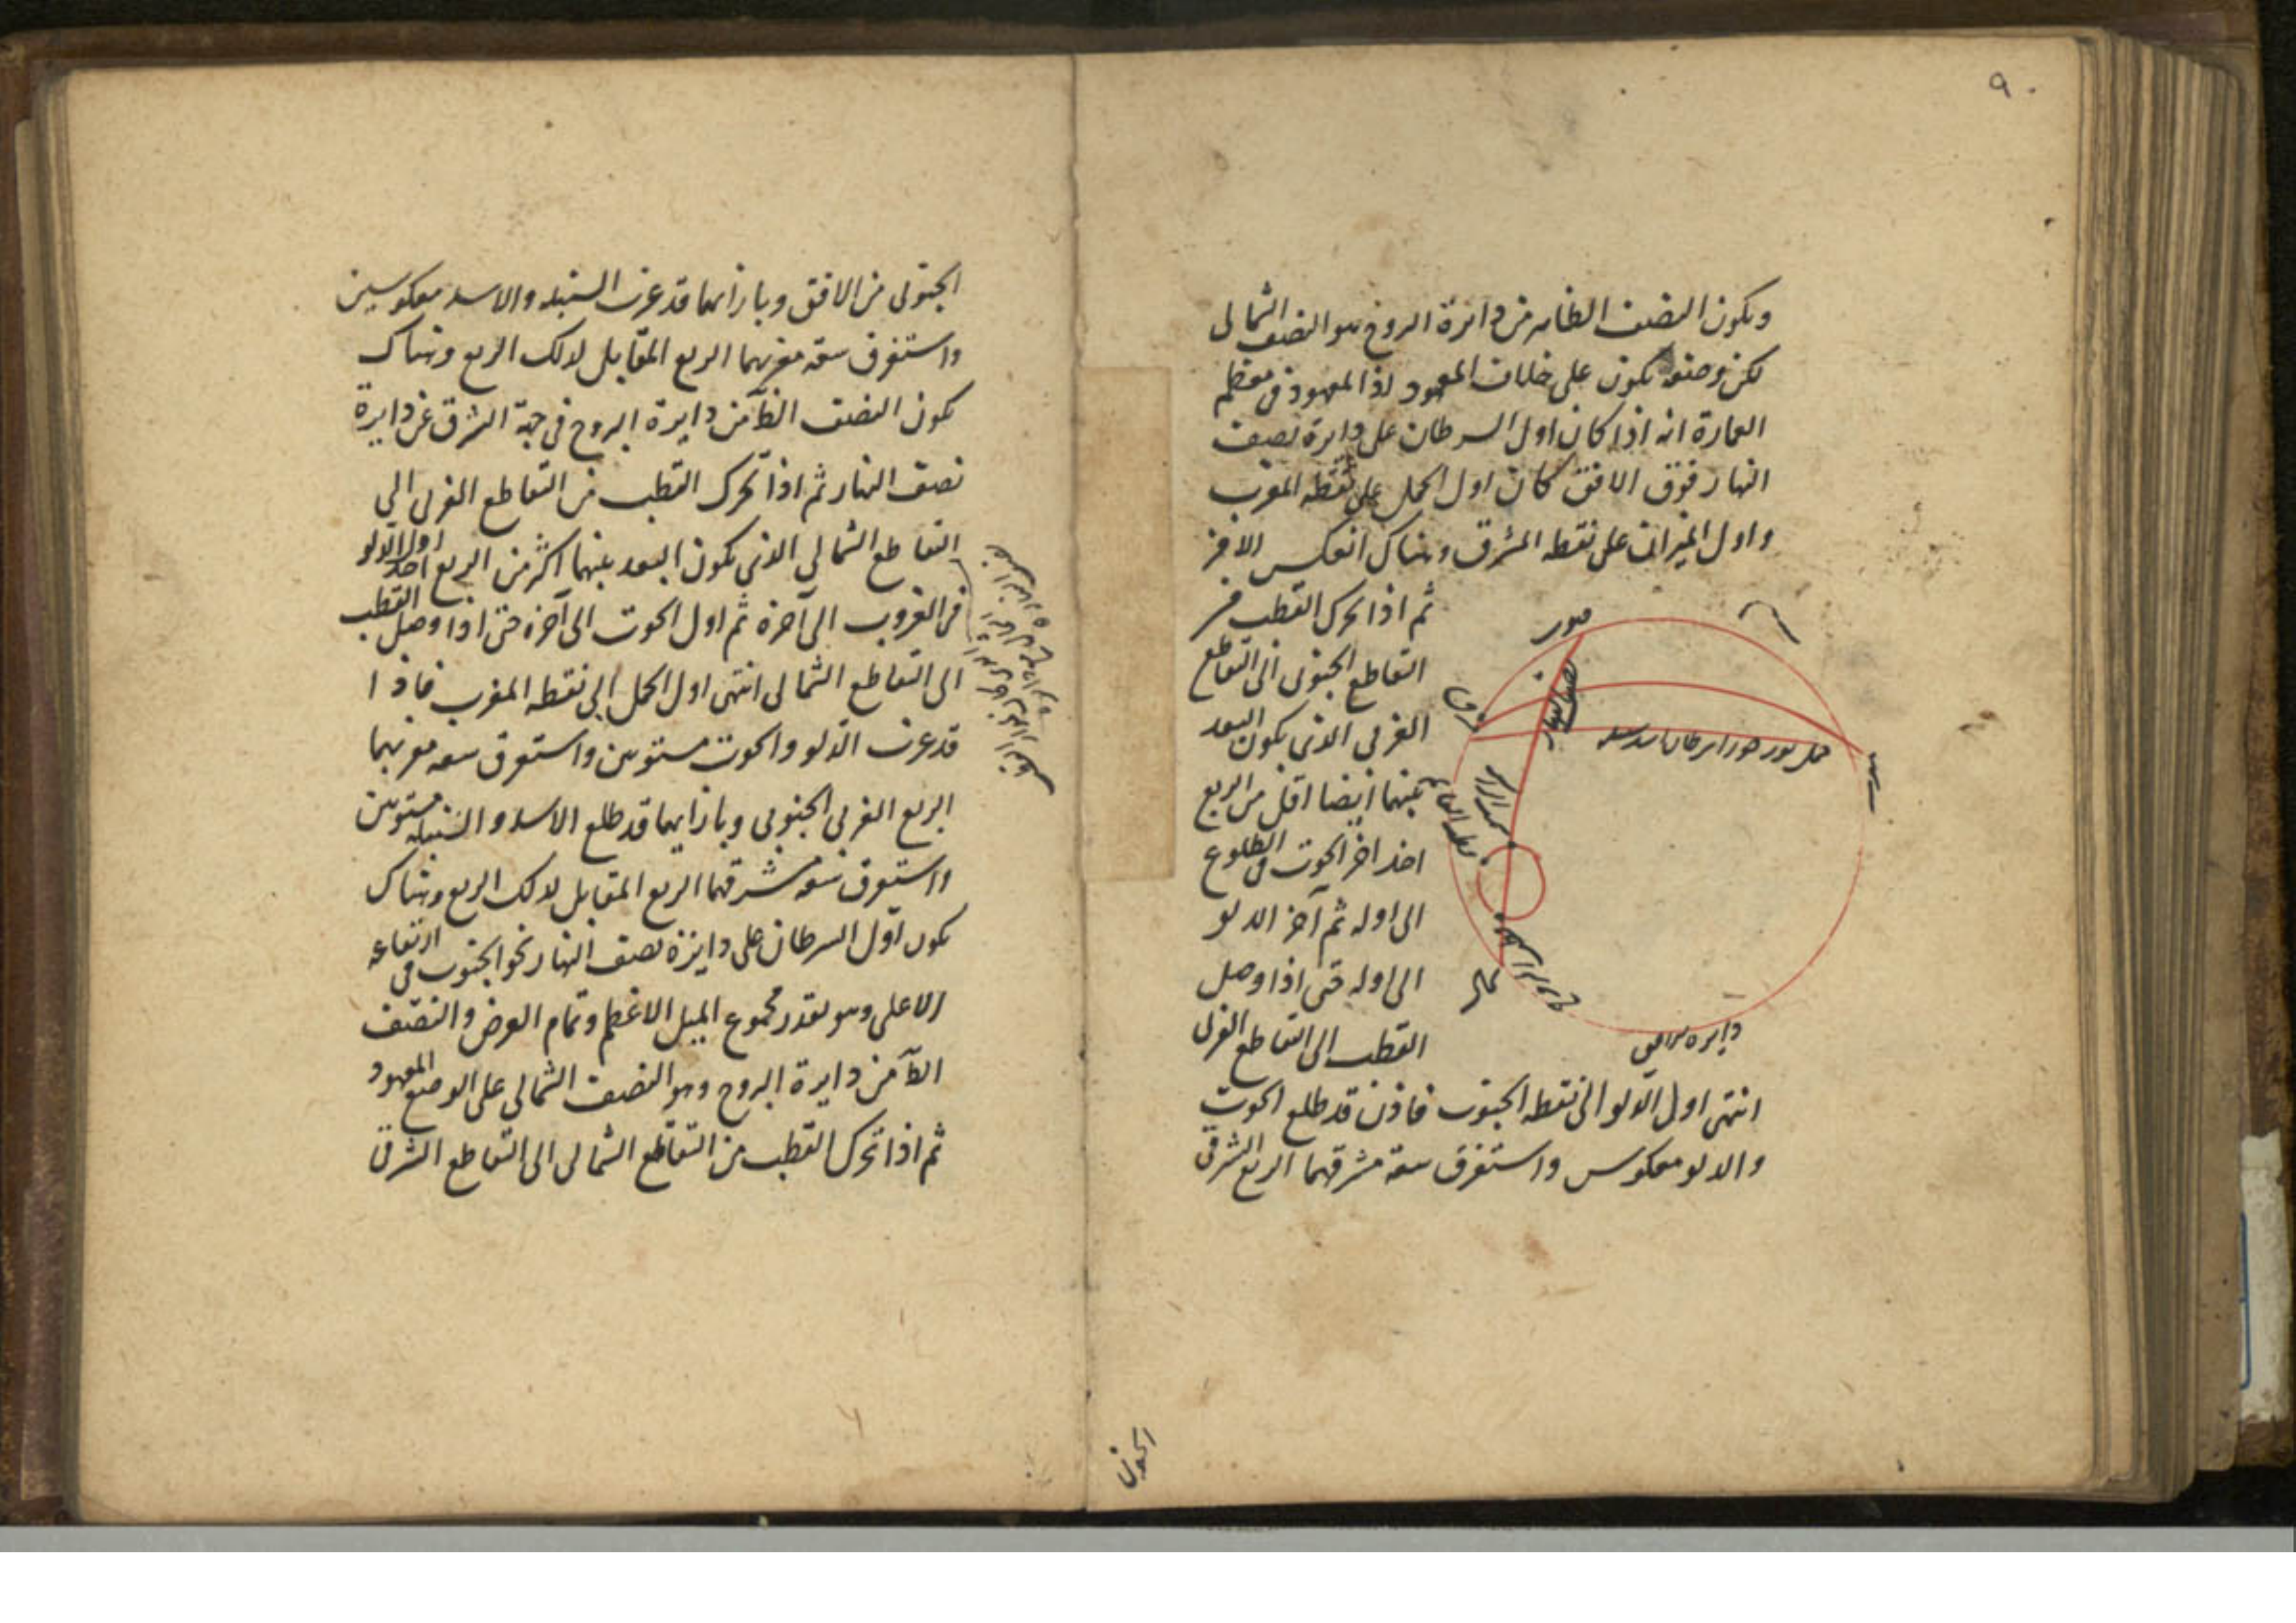 ٩٠
ويكون النصف الظاهر من دائرة البروج هو النصف الشمالى
لكن وضعه يكون على خلاف المعهود اذ المعهود فى معظم
العمارة انه اذا كان اول السرطان على دايرة نصف
النهار فوق الافق كان اول الحمل على نقطه المغرب
واول الميزان على نقطه المشرق وهناك انعكس الامر
ثم اذا تحرك القطب من
التقاطع الجنوبى الى التقاطع
الغربى الذى يكون البعد
بينهما ايضا اقل من الربع
اخذ اخر الحوت فى الطلوع
الى اوله ثم آخر الدلو
الى اوله حتى اذا وصل
القطب الى التقاطع الغربى
جنوب
نصف النهار
حمل ثور جوزا سرطان اسد سنبله
شمال
انتهى اول الدلو الى نقطه الجنوب فاذن قد طلع الحوت
والدلو معكوس واستغرق سعة مشرقهما الربع الشرقى
الجنوبى
الجنوبى من الافق وبازائهما قد غرب السنبله والاسد معكوسين
واستغرق سعة مغربهما الربع المقابل لذلك الربع وهناك
يكون النصف الظآ من دايرة البروج فى جهة الشرق عن دايرة
نصف النهار ثم اذا تحرك القطب من التقاطع الغربى الى
التقاطع الشمالى الذى يكون البعد بينهما اكثر من الربع اخذ اول الدلو
فى الغروب الى آخره ثم اول الحوت الى آخره حتى اذا وصل القطب
الى التقاطع الشمالى انتهى اول الحمل الى نقطه المغرب فاذا
قد غرب الدلو والحوت مستويين واستغرق سعه مغربهما
الربع الغربى الجنوبى وبازايهما قد طلع الاسد والسنبله مستويين
واستغرق سعه مشرقهما الربع المقابل لذلك الربع وهناك
يكون اول السرطان على دايرة نصف النهار نحو الجنوب فى ارتفاعه
الاعلى وهو بقدر مجموع الميل الاعظم وتمام العرض والنصف
الظآ من دايرة البروج وهو النصف الشمالى على الوضع المعهود
ثم اذا تحرك القطب من التقاطع الشمالى الى التقاطع الشرقى